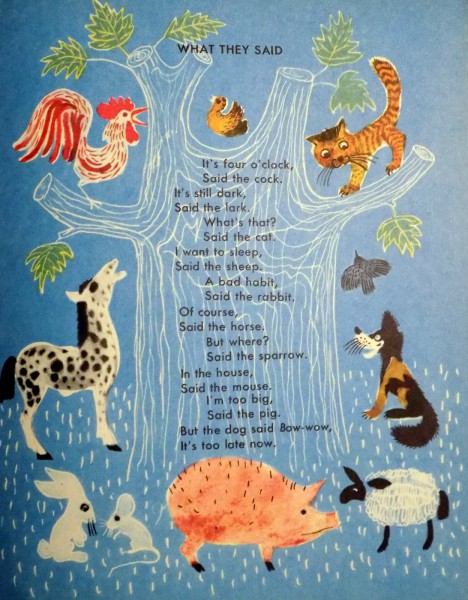 WHAT THEY SAID
It's four o'clock,
Said the cock.
It's still dark,
Said the lark.
What's that?
Said the cat.
I want to sleep,
Said the sheep.
A bad habit,
Said the rabbit.
Of course,
Said the horse.
But where?
Said the sparrow.
In the house,
Said the mouse.
I'm too big,
Said the pig.
But the dog said Bow-wow,
It's too late now.